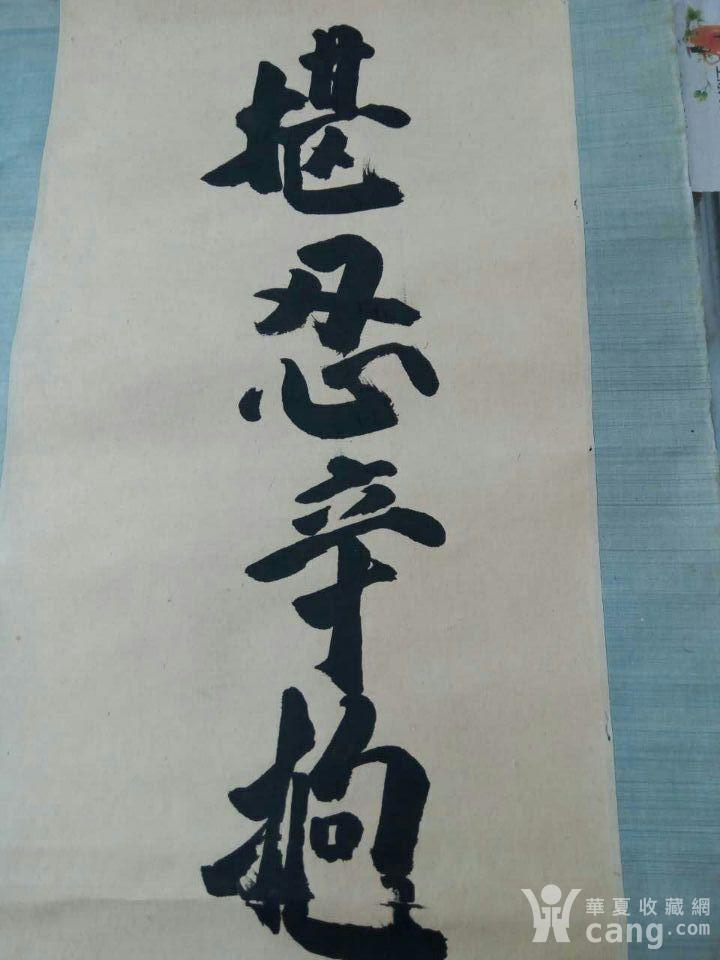 堪忍辛抱
華夏收藏網
cang.com